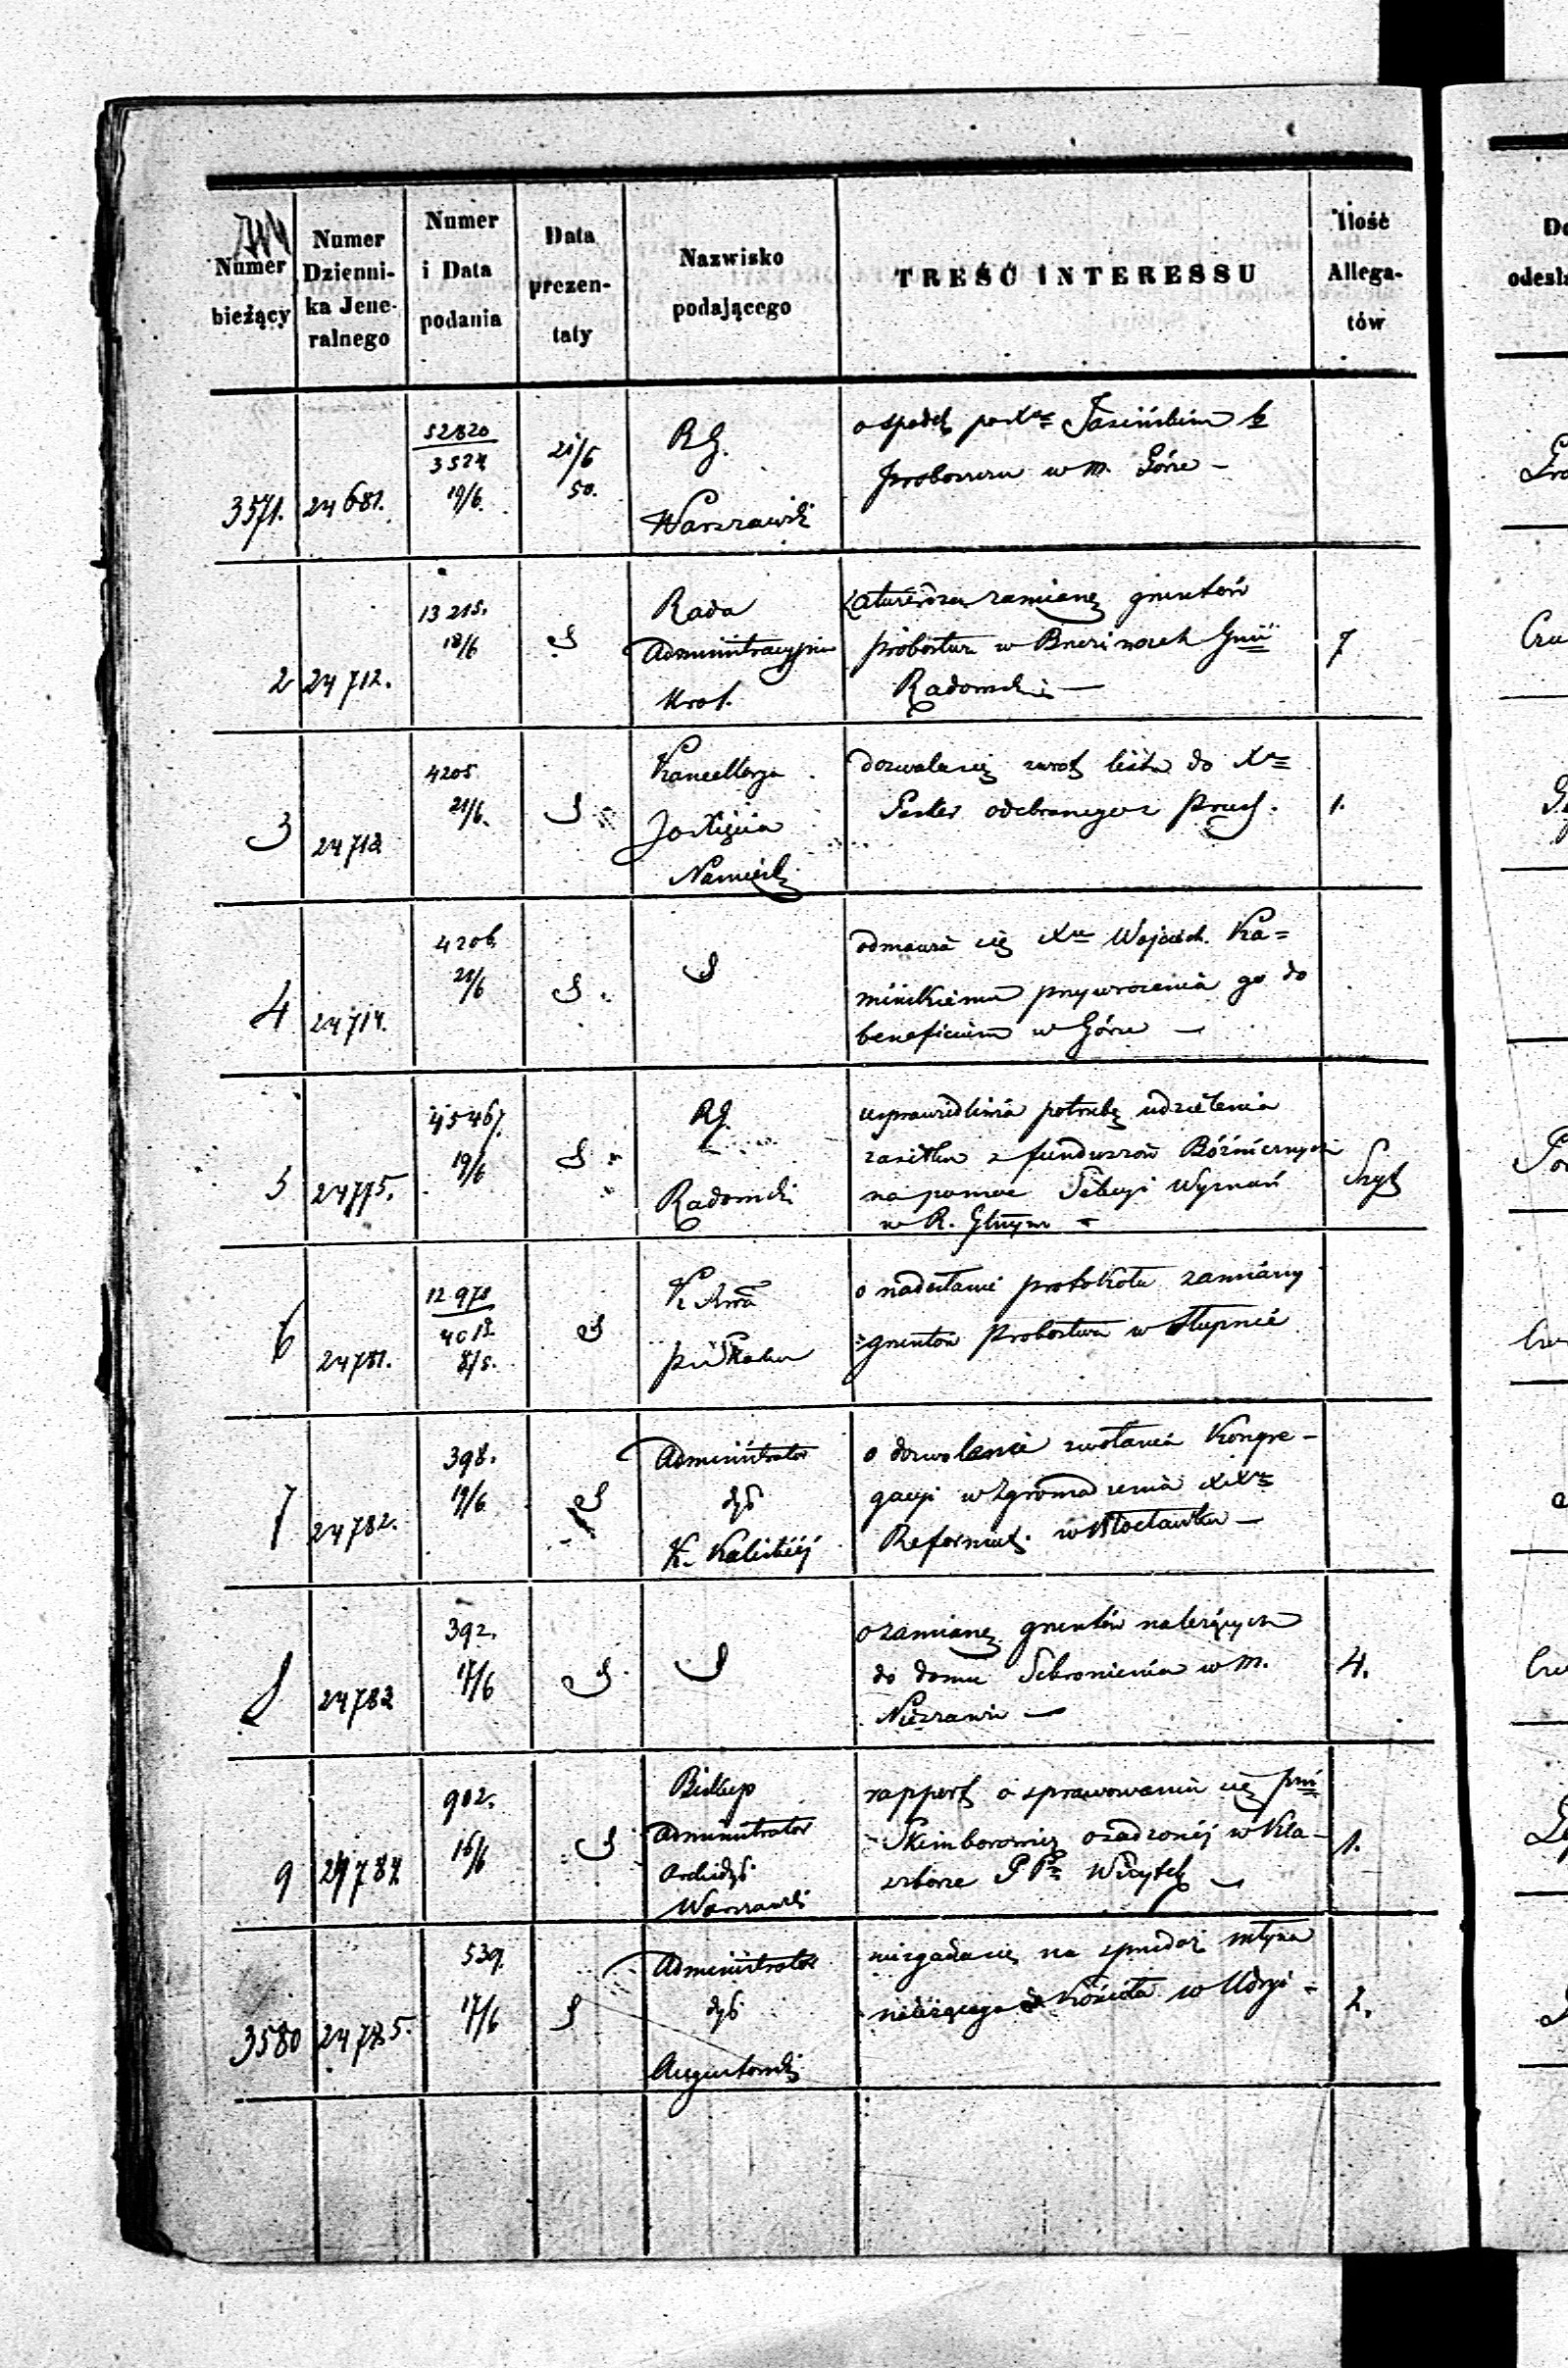 Numer bieżący | Numer Dziennika Jeneralnego | Numer i Data podania | Data prezentaty | Nazwisko podającego | TREŚĆ INTERESSU | Ilość Allegatów
3571. 24681.
52820
3524
19/6.
21/6
50.
RG.
Warszawski
o spadek po Xse Jasińskim b
proboszczu w m. Górze –
2 24712.
13215.
18/6
Rada
Administracyjna
Krol.
Zatwierdza zamianę gruntów
probostwa w
Radomskiéj –
7
3 24713
4205
21/6.
Kancellarya
Namiest
dozwala się zwrot listu do Xa
odebranego z Prus.
1.
4 24714.
4206
21/6
odmawia się Xu Wojciech. Ka=
mińskiemu przywrócenia go do
beneficium w Górze –
5 24775.
45467.
19/6
RG.
Radomski
usprawiedliwia potrzebę udzielenia
zasiłku z funduszów Bóźniczych
na pomoc Sekcyi Wyznań
w R. Gltnym –
6 24781.
12971
4012
8/5.
o nadesłanie protokołu zamiany
gruntów Probostwa w Słupnie
7 24782.
398.
19/6
Administrator
dyc
K. Kaliskiéj
o dozwolenie zwołania Kongre-
gacyi w Zgromadzenia XX
Reformat. w Włocławku –
8 24783
392.
17/6
o zamianę gruntów należących
do domu Schronienia w m.
Nieszawie –
4.
9 24784
902.
16/6
Biskup
Administrator
Archidyc
Warszawski
rapport o sprawowaniu się
Skimborowicz osadzonéj w Kla-
sztorze PP Wizytek –
1.
3580 24785.
539.
17/6
Administrator
dyc
Augustowski
niezgadza się na sprzedaż młyna
należącego do Kościoła w
2.